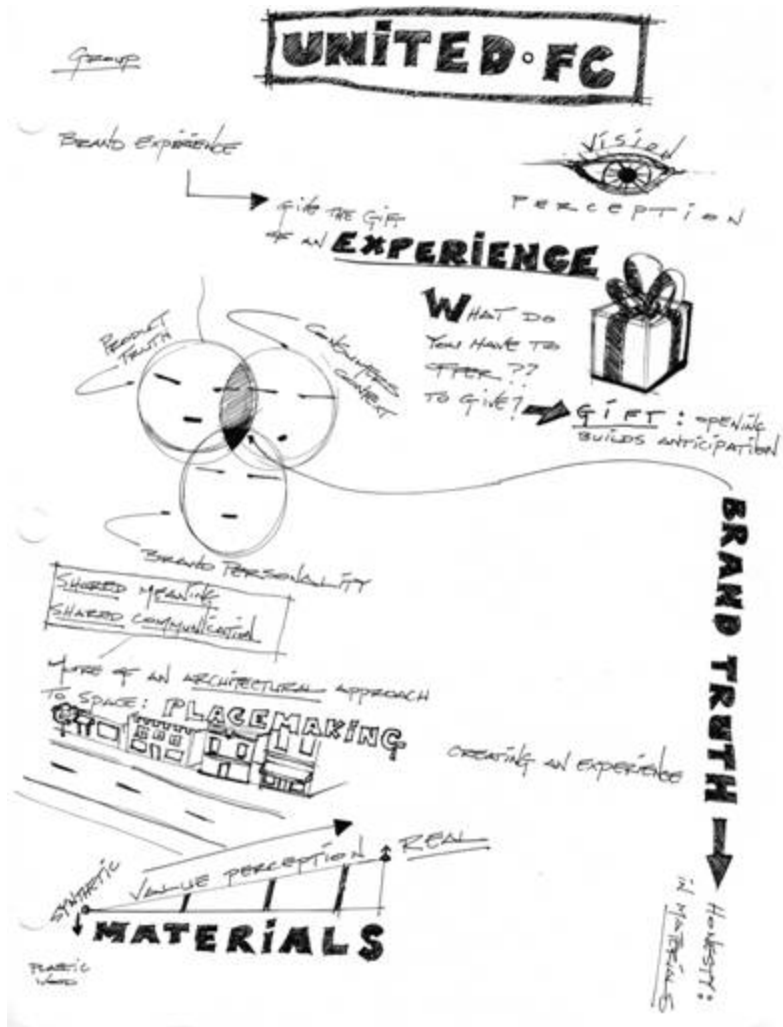 UNITED·FC
GROUP
BRAND EXPERIENCE
VISION
PERCEPTION
GIVE THE GIFT
OF AN EXPERIENCE
WHAT DO
YOU HAVE TO
OFFER??
TO GIVE?
GIFT: OPENING
BUILDS ANTICIPATION
PRODUCT
TRUTH
CONSUMERS
CONTEXT
BRAND PERSONALITY
SHARED MEANING
SHARED COMMUNICATION
BRAND TRUTH
HONESTY:
IN MATERIALS
MORE OF AN ARCHITECTURAL APPROACH
TO SPACE: PLACEMAKING
CREATING AN EXPERIENCE
SYNTHETIC
VALUE PERCEPTION
REAL
MATERIALS
PLASTIC
WOOD